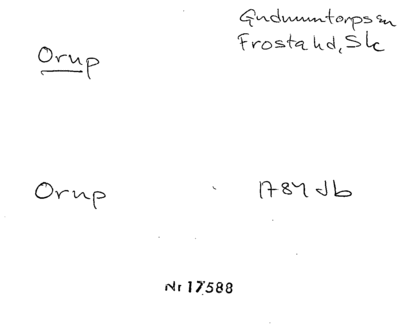 Orup
Gudmuntorps sn
Frosta hd, Sk
Orup
1784 Jb
Nr 17588